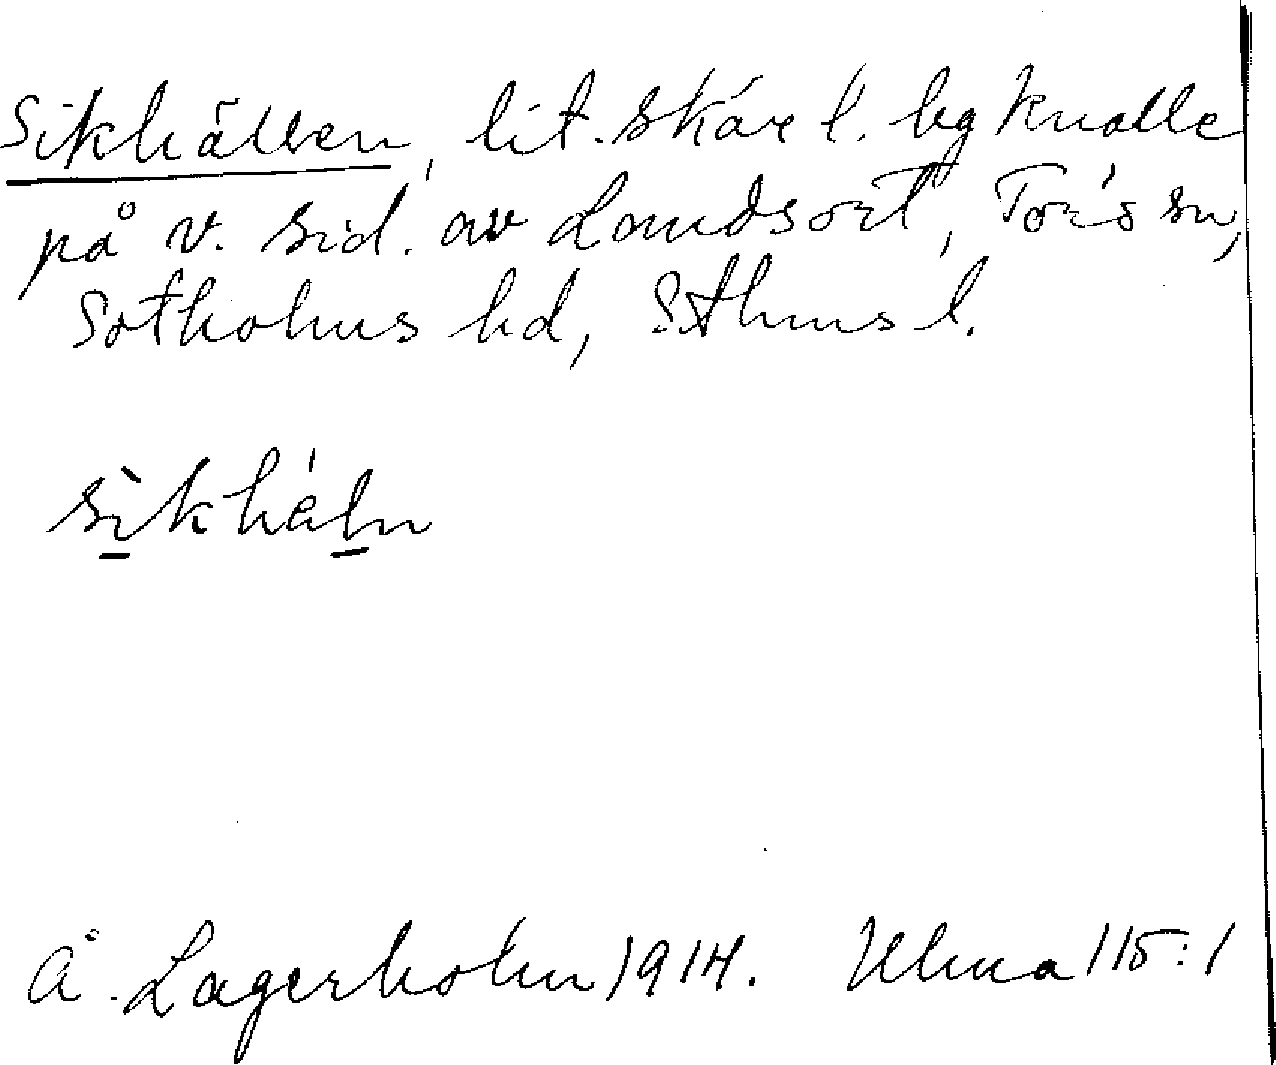 Sikhällen, lit. skär l. bg knalle
på v. sid. av Landsort, Torö sn,
Sotholms hd, Sthms l.
sìkháln
Å. Lagerholm 1914. Ulma 115:1